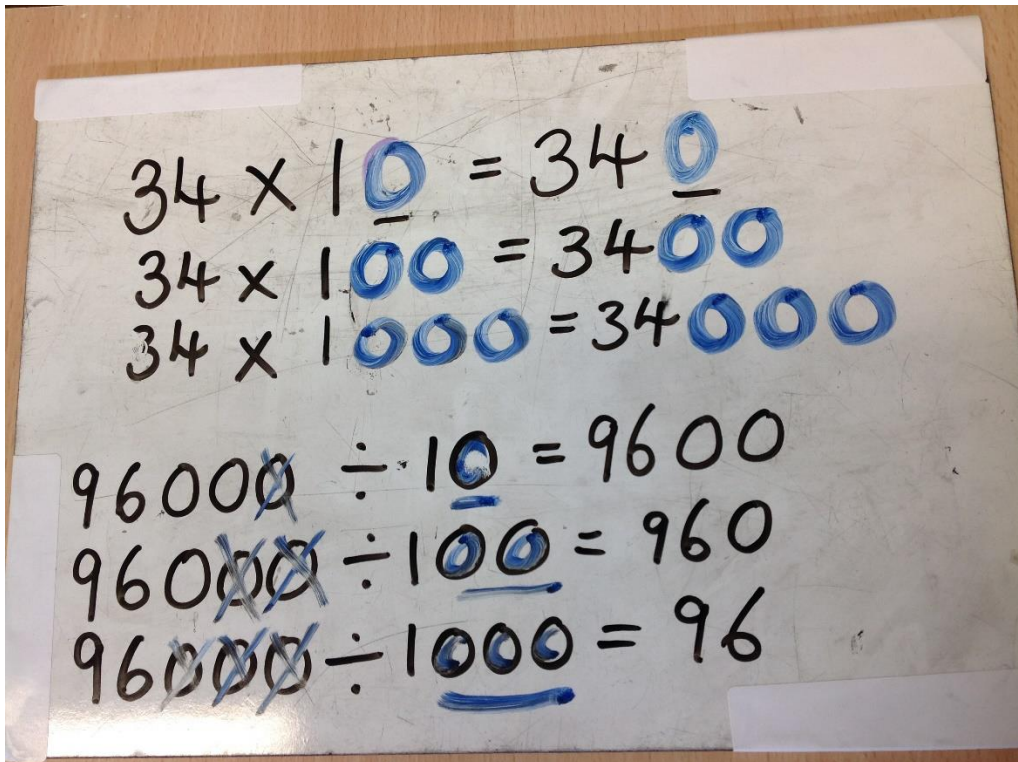 34 × 10 = 340
34 × 100 = 3400
34 × 1000 = 34000
96000 ÷ 10 = 9600
96000 ÷ 100 = 960
96000 ÷ 1000 = 96